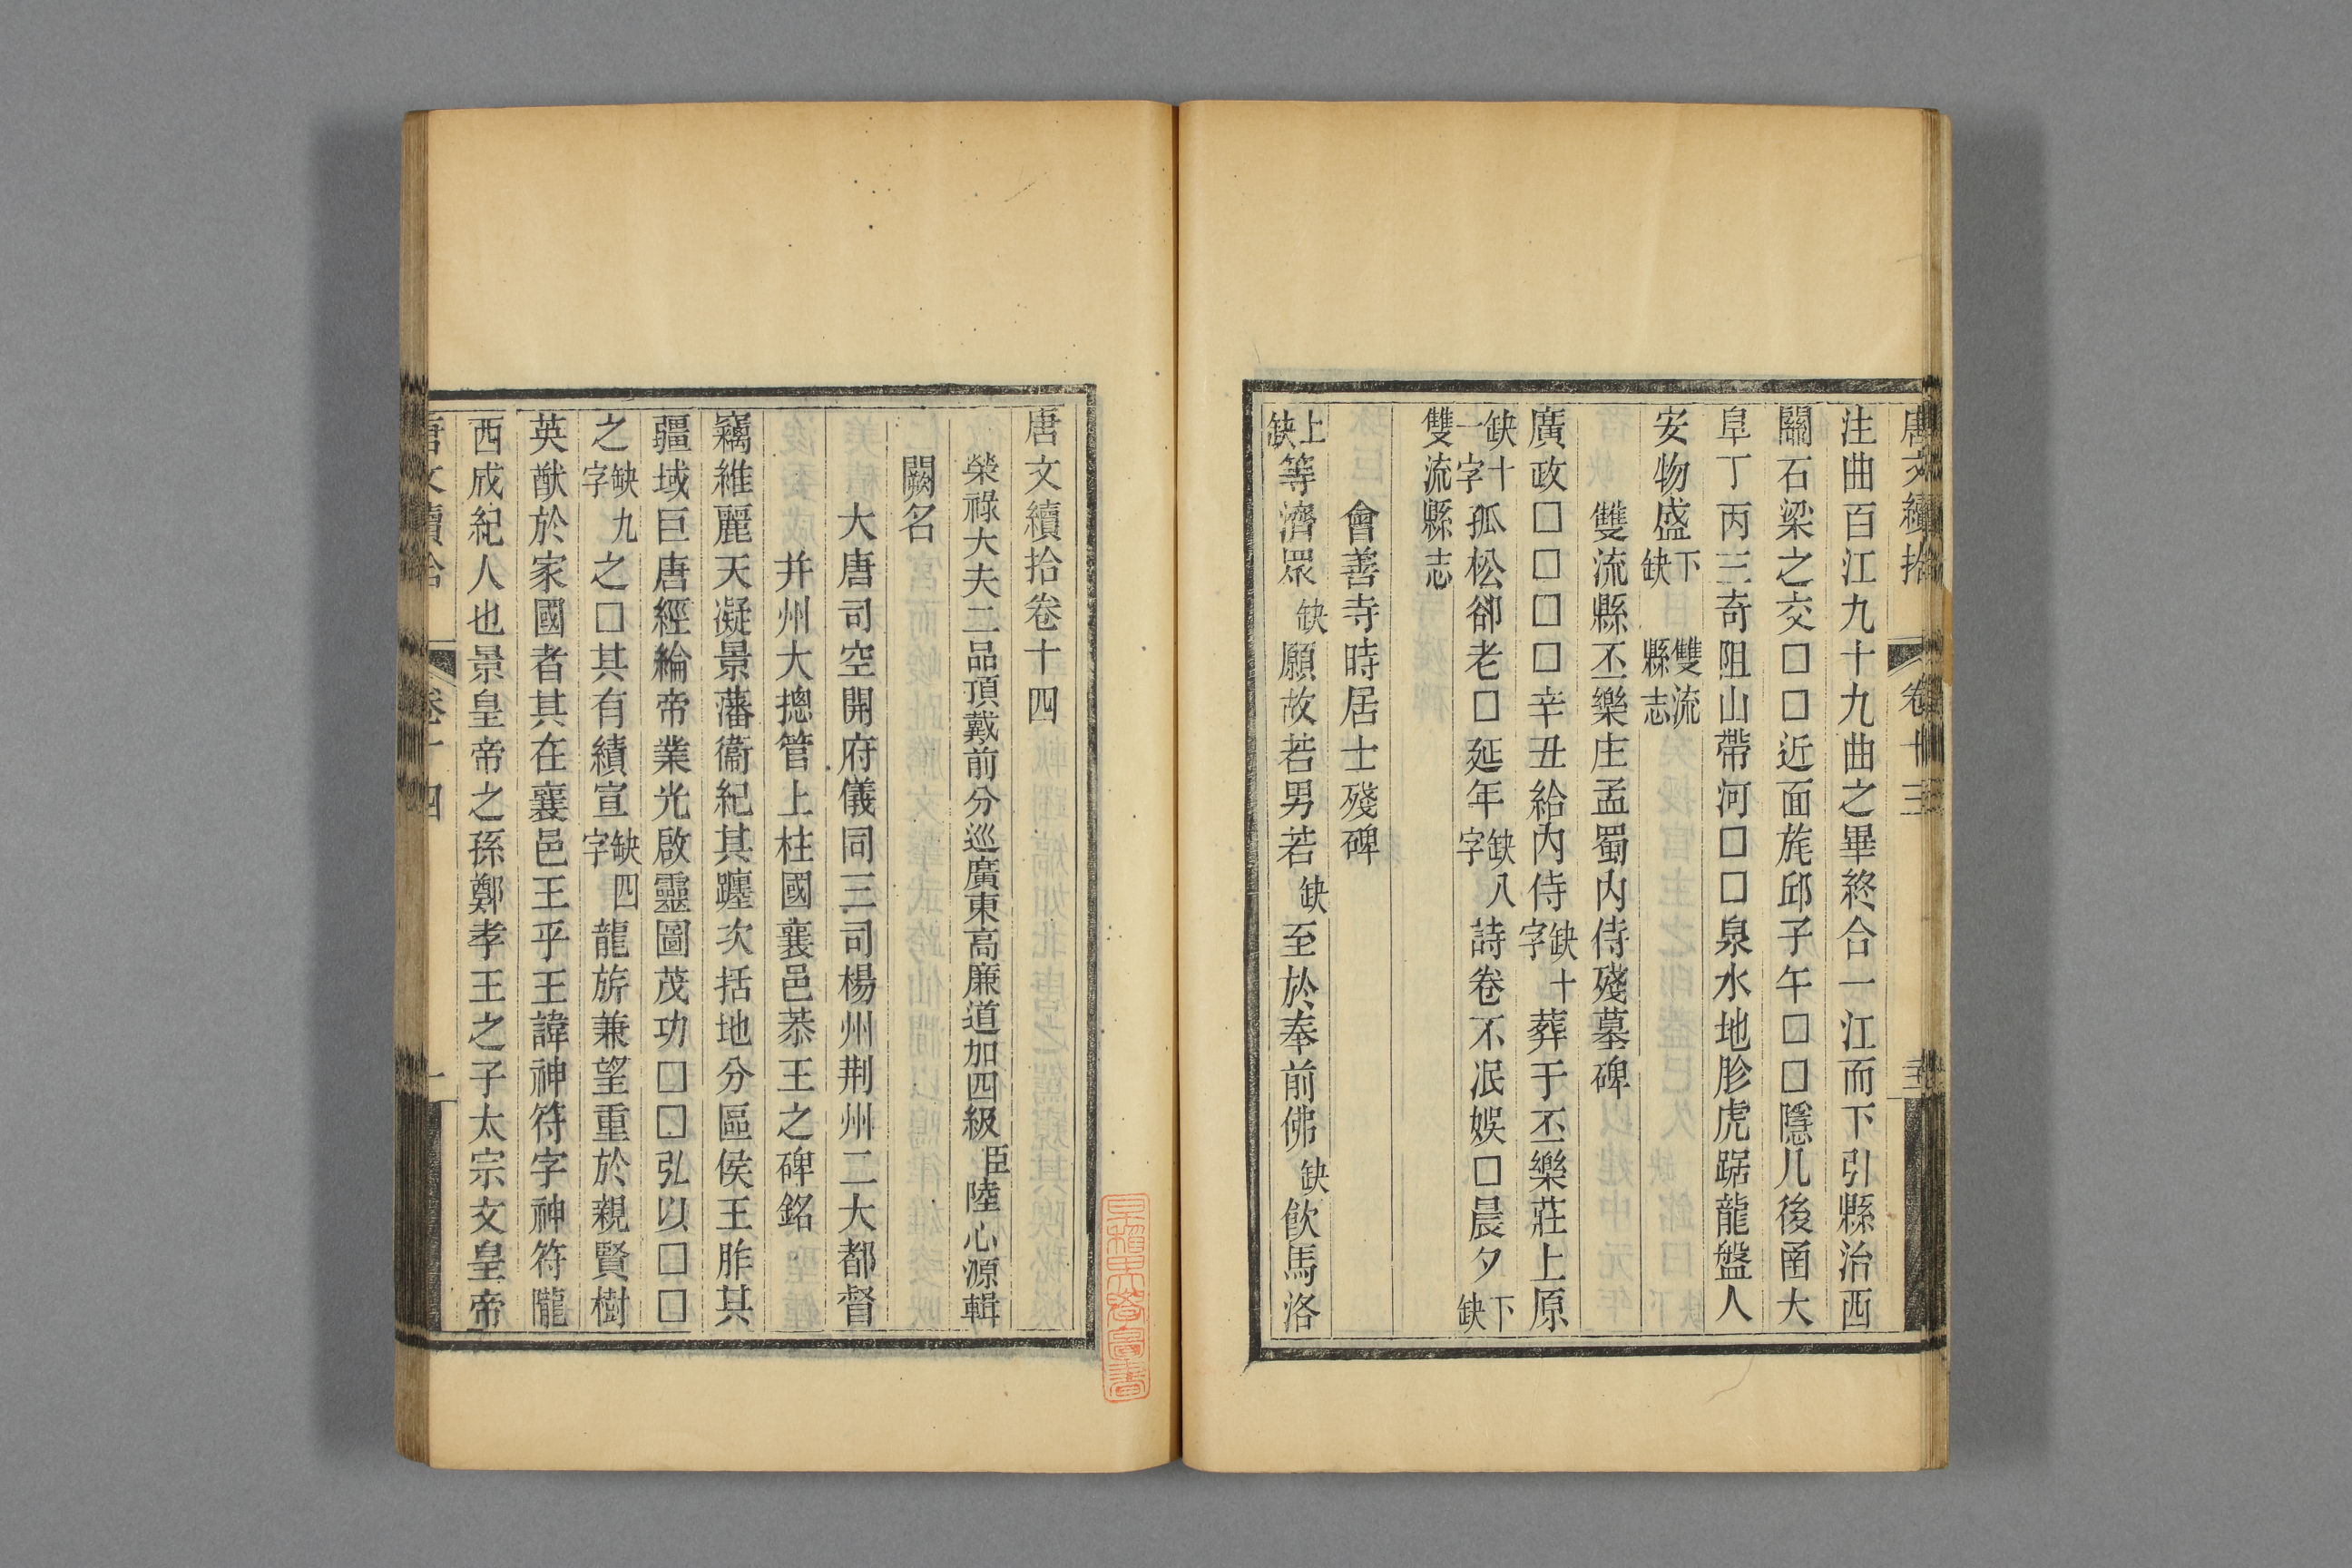 唐文續拾 卷十三
注曲百江九十九曲之畢終合一江而下引縣治西
關石梁之交□□近面旄邱子午□□隱几後甬大
阜丁丙三奇阻山帶河□□泉水地胗虎踞龍盤人
安物盛下缺 雙流縣志
雙流縣丕樂庄孟蜀內侍殘墓碑
廣政□□□□辛丑給內侍缺十字葬于丕樂莊上原
缺十一字孤松郤老□延年缺八字詩卷不泯娛□晨夕下缺
雙流縣志
會善寺時居士殘碑
上缺等濟眾缺願故若男若缺至於奉前佛缺飲馬洛
唐文續拾卷十四
榮祿大夫二品頂戴前分巡廣東高廉道加四級臣陸心源輯
闕名
大唐司空開府儀同三司楊州荆州二大都督
并州大摠管上柱國襄邑恭王之碑銘
竊維麗天凝景藩衞紀其躔次括地分區侯王胙其
疆域巨唐經綸帝業光啟靈圖茂功□□弘以□□
之缺九字之□其有績宣缺四字龍旂兼望重於親賢樹
英猷於家國者其在襄邑王乎王諱神符字神符隴
西成紀人也景皇帝之孫鄭孝王之子太宗文皇帝
唐文續拾 卷十四 一